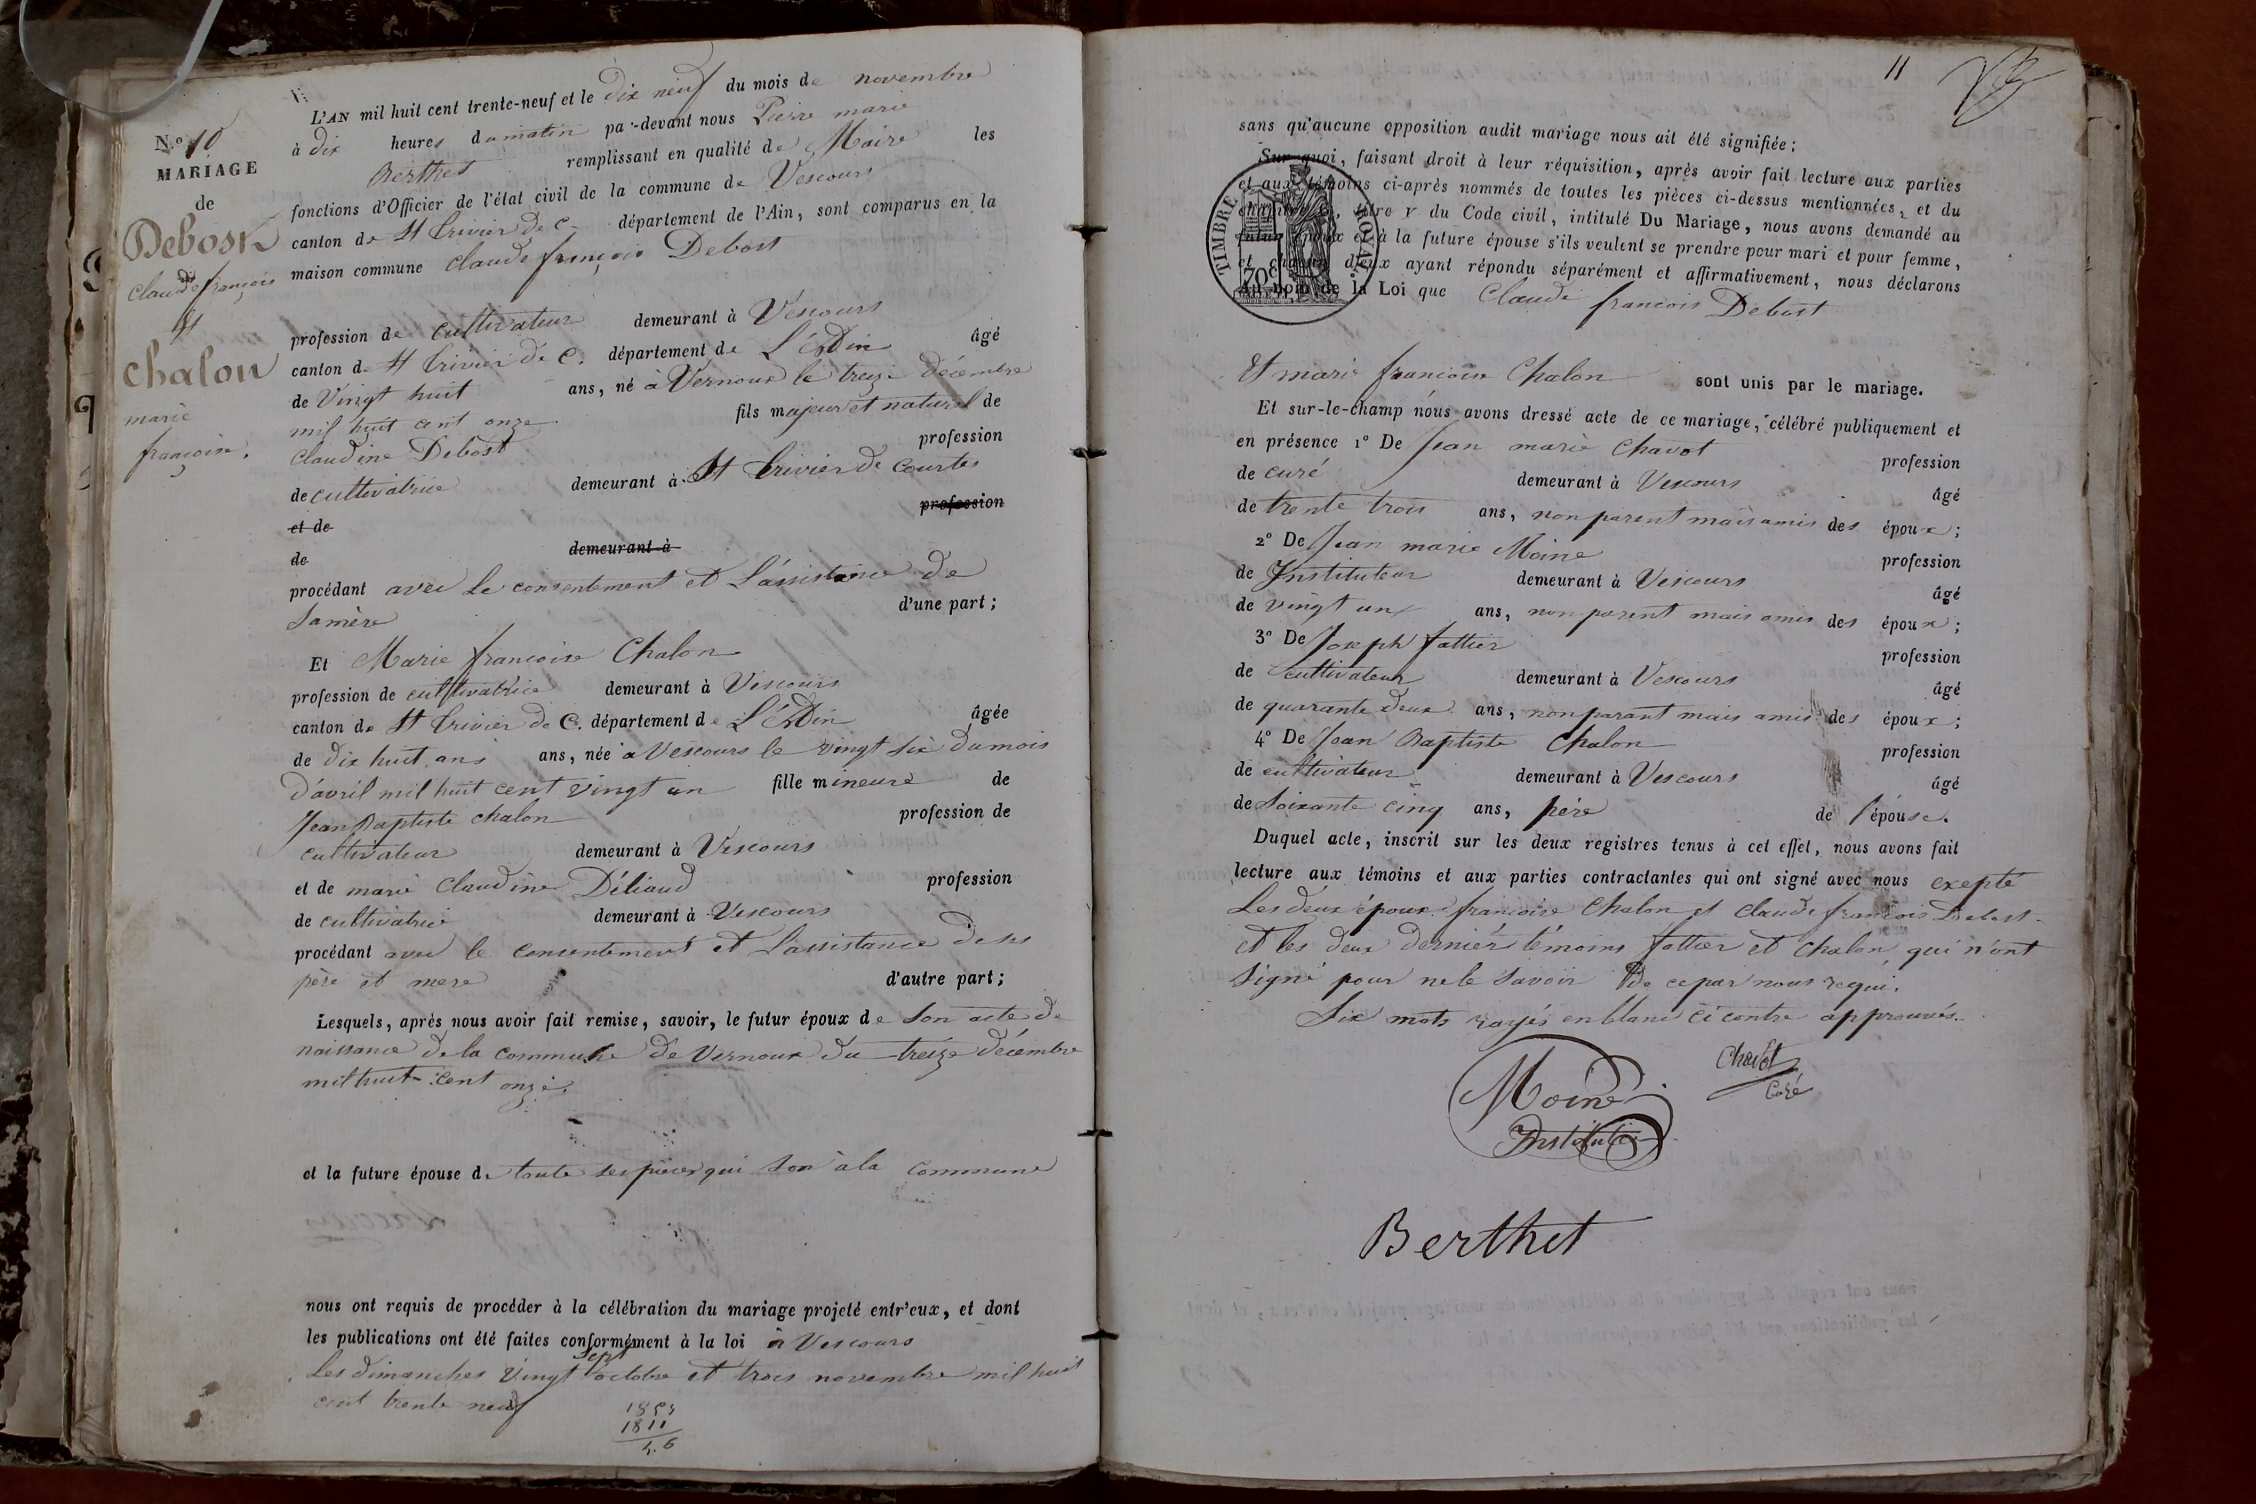 N.º 10
MARIAGE
de
Debost
Claude françois
et
Chalon
marie
francoise.
L'AN mil huit cent trente-neuf et le dix neuf du mois de novembre
à dix heures du matin par-devant nous Pierre marie
Berthet remplissant en qualité de Maire les
fonctions d'Officier de l'état civil de la commune de Vescours
canton de St Trivier de C. département de l'Ain, sont comparus en la
maison commune Claude françois Debost
profession de cultivateur demeurant à Vescours
canton de St Trivier de C. département de L'Ain âgé
de Vingt huit ans, né à Vernoux le treize décembre
mil huit cent onze fils majeur et naturel de
Claudine Debost profession
de cultivatrice demeurant à St Trivier de Courtes
et de profession
de demeurant à
procédant avec le consentement et L'assistance de
Sa mère d'une part;
Et Marie francoise Chalon
profession de cultivatrice demeurant à Vescours
canton de St Trivier de C. département de L'Ain âgée
de dix huit ans ans, née à Vescours le vingt six du mois
d'avril mil huit cent vingt un fille mineure de
Jean Baptiste chalon profession de
cultivateur demeurant à Vescours
et de marie Claudine Déliaud profession
de cultivatrice demeurant à Vescours
procédant avec le consentement et L'assistance de ses
père et mere d'autre part;
Lesquels, après nous avoir fait remise, savoir, le futur époux de Son acte de
naissance de la commune de Vernoux du treize décembre
mil huit cent onze.
et la future épouse de toute ses pieces qui son à la Commune
nous ont requis de procéder à la célébration du mariage projeté entr'eux, et dont
les publications ont été faites conformément à la loi à Vescours
Les dimanches vingt sept octobre et trois novembre mil huit
cent trente neuf
1811
11
sans qu'aucune opposition audit mariage nous ait été signifiée;
Sur quoi, faisant droit à leur réquisition, après avoir fait lecture aux parties
et aux témoins ci-après nommés de toutes les pièces ci-dessus mentionnées, et du
chapitre 6, titre V du Code civil, intitulé Du Mariage, nous avons demandé au
futur époux et à la future épouse s'ils veulent se prendre pour mari et pour femme,
et chacun d'eux ayant répondu séparément et affirmativement, nous déclarons
Au nom de la Loi que Claude francois Debost
TIMBRE ROYAL
70c
Et marie francoise Chalon sont unis par le mariage.
Et sur-le-champ nous avons dressé acte de ce mariage, célébré publiquement et
en présence 1º De Jean marie Chavot profession
de curé demeurant à Vescours âgé
de trente trois ans, non parent mais amis des époux;
2º De Jean marie Moine profession
de Instituteur demeurant à Vescours âgé
de vingt un ans, non parent mais amis des époux;
3º De Joseph fattier profession
de cultivateur demeurant à Vescours âgé
de quarante deux ans, non parant mais amis des époux;
4º De Jean Baptiste Chalon profession
de cultivateur demeurant à Vescours âgé
de Soixante cinq ans, père de l'épouse.
Duquel acte, inscrit sur les deux registres tenus à cet effet, nous avons fait
lecture aux témoins et aux parties contractantes qui ont signé avec nous exepté
Les deux époux francoise Chalon et Claude francois Debost
et les deux dernier témoins fattier et Chalon, qui n'ont
Signé pour ne le Savoir De ce par nous requi.
Six mots rayés en blanc ci contre approuvés.
Chavot
Curé
Moine
Instituteur
Berthet